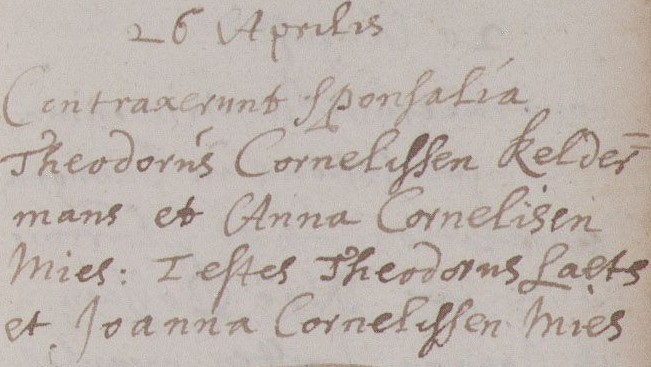 26 Aprilis
Contraxerunt sponsalia
Theodorus Cornelissen kelder=
mans et Anna Cornelisen
Mies: Testes Theodorus Laets
et Joanna Cornelissen Mies